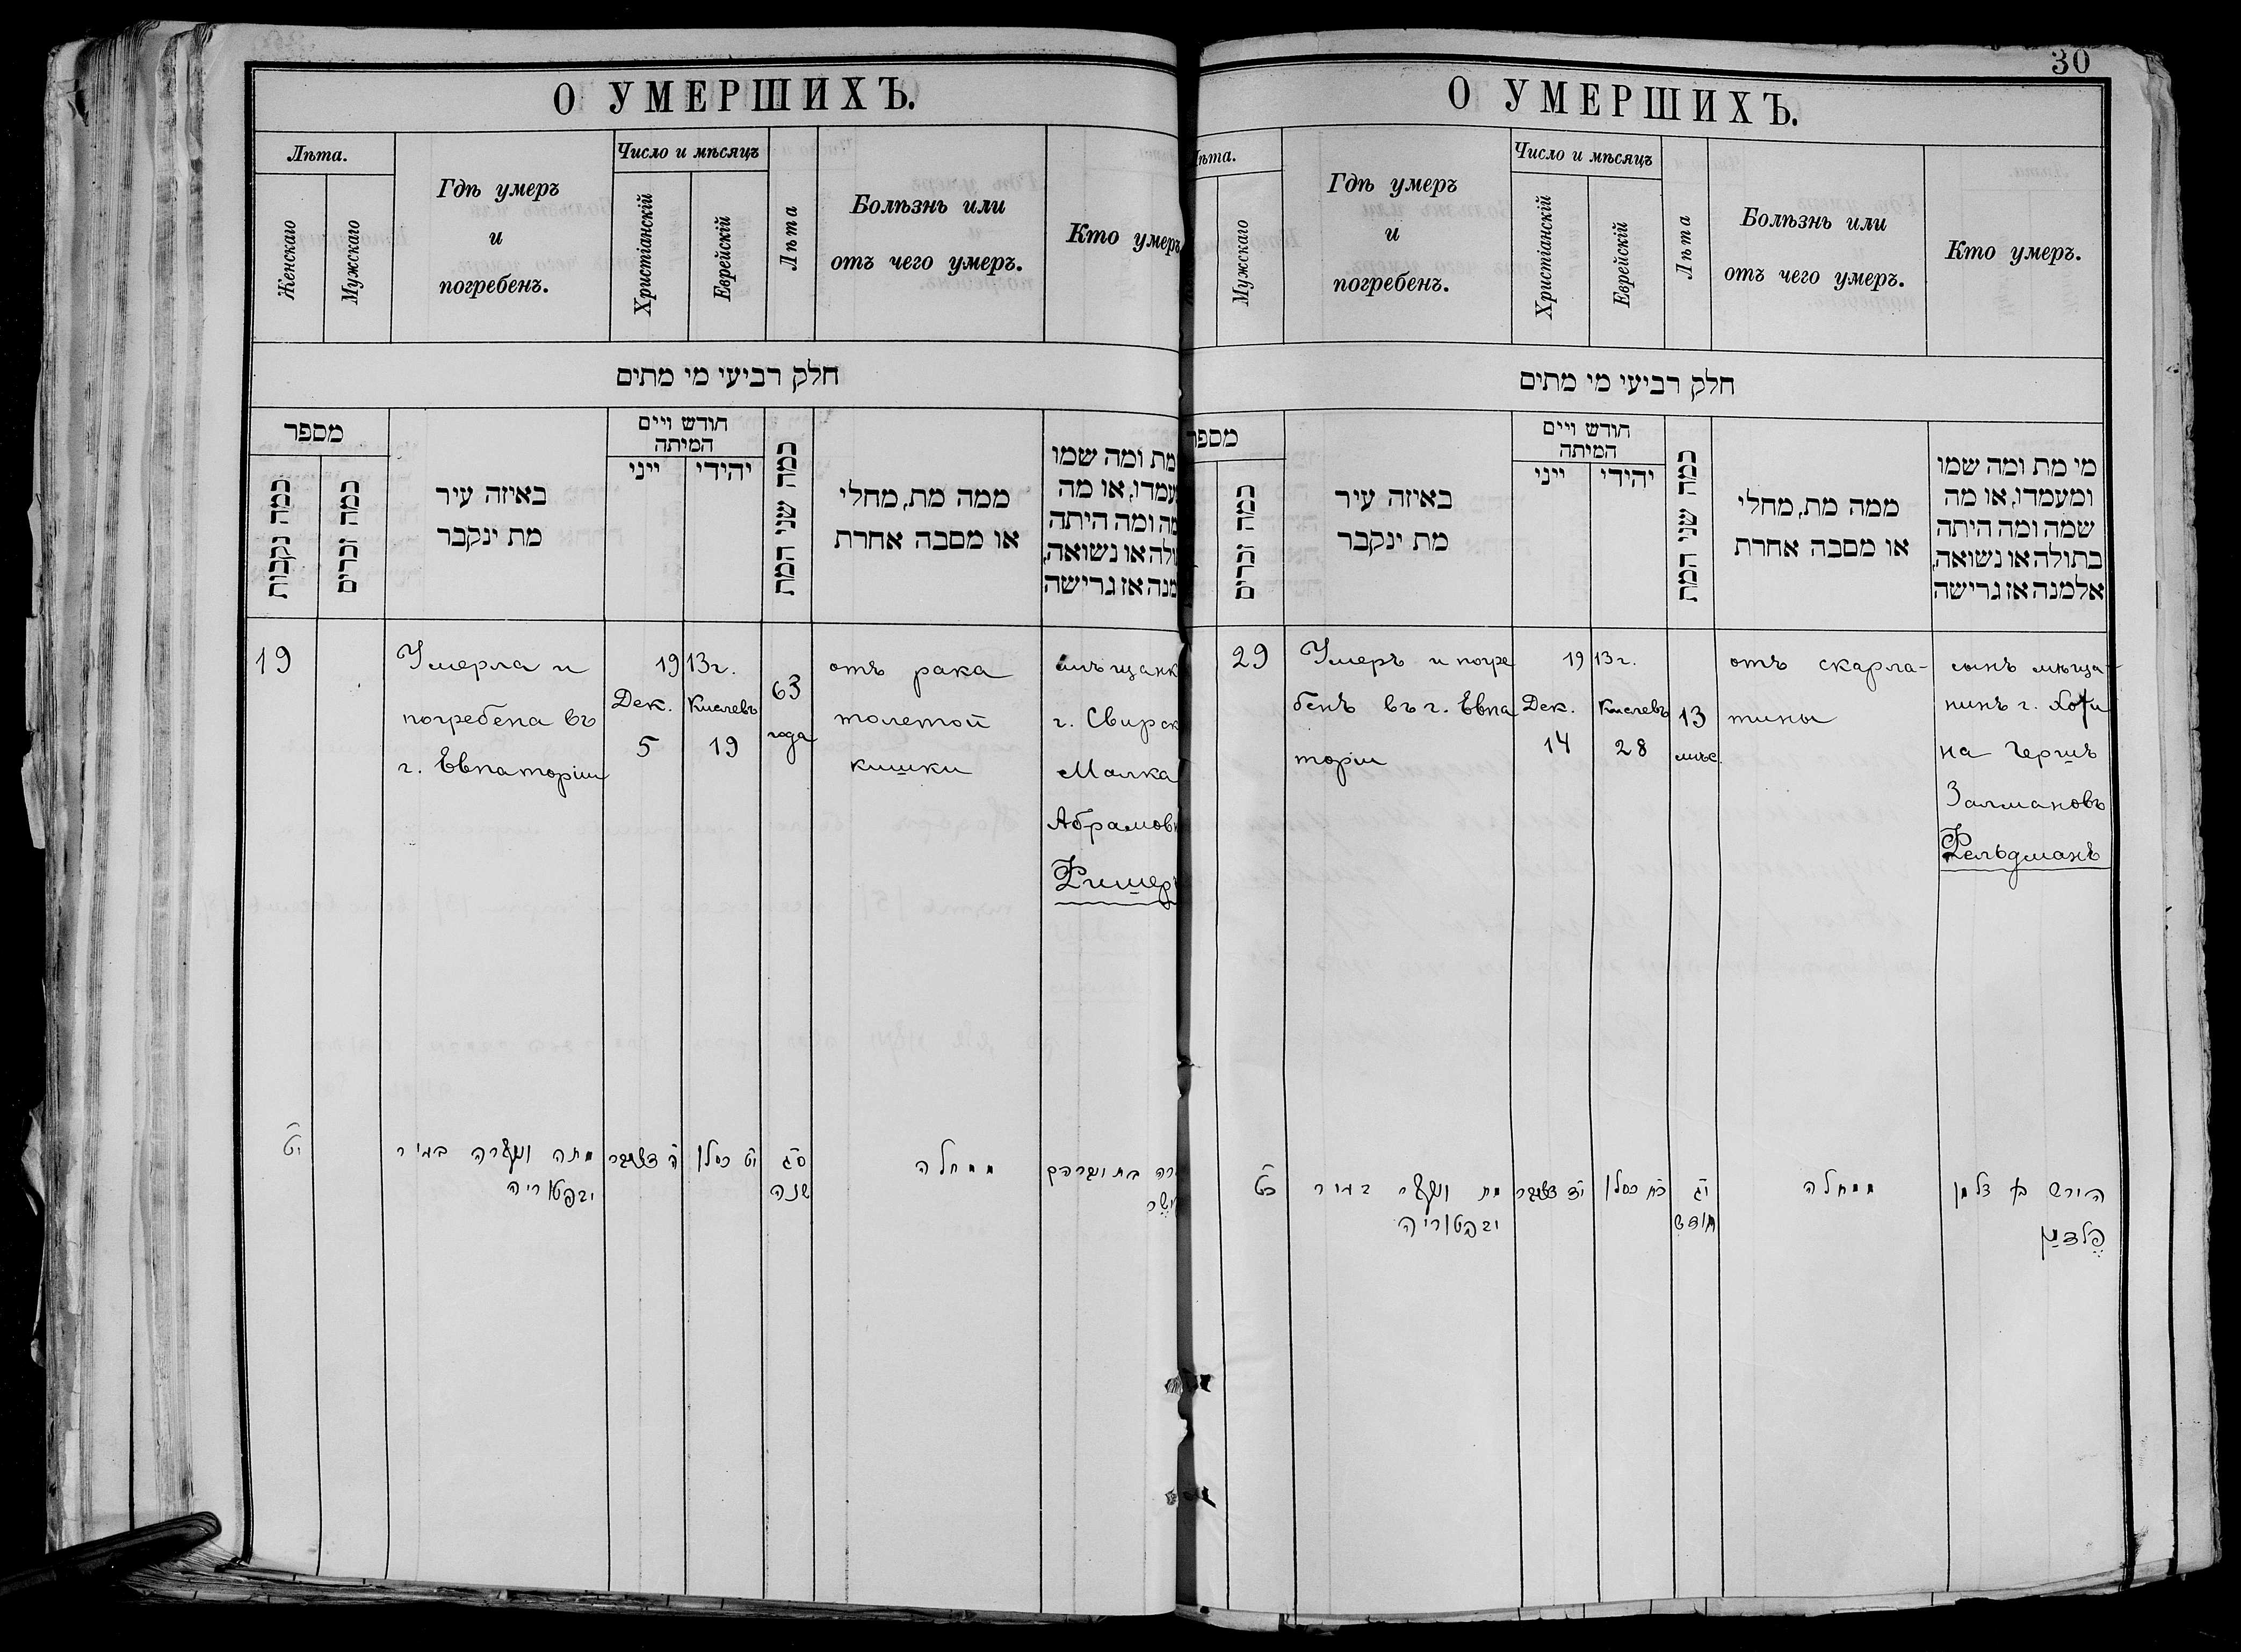 О УМЕРШИХЪ.
Лѣта.
Женскаго
Мужскаго
Гдѣ умеръ
и
погребенъ.
Число и мѣсяцъ
Христіанскій
Еврейскій
Лѣта
Болѣзнь или
отъ чего умеръ.
Кто умеръ
חלק רביעי מי מתים
מספר
כמה נקבות
כמה זכרים
באיזה עיר
מת ינקבר
חודש ויים
המיתה
ייני
יהידי
כמה שני המת
ממה מת, מחלי
או מסבה אחרת
מת ומה שמו
עמדו, או מה
מה ומה היתה
ולה או נשואה,
מנה אז גרישה
19
Умерла и
погребена въ
г. Евпаторіи
1913 г.
Дек.
5
Кислевъ
19
63
года
отъ рака
толстой
кишки
мѣщанк
г. Свирск
Малка
Абрамовн
Фишер
יט
מתה ונקברה בעיר
יבפטוריה
ה דצמבר
יט כסלו
סג
שנה
ממחלה
רה בת אברהם
ישר
30
О УМЕРШИХЪ.
Лѣта.
Мужскаго
Гдѣ умеръ
и
погребенъ.
Число и мѣсяцъ
Христіанскій
Еврейскій
Лѣта
Болѣзнь или
отъ чего умеръ.
Кто умеръ.
חלק רביעי מי מתים
מספר
כמה זכרים
באיזה עיר
מת ינקבר
חודש ויים
המיתה
ייני
יהידי
כמה שני המת
ממה מת, מחלי
או מסבה אחרת
מי מת ומה שמו
ומעמדו, או מה
שמה ומה היתה
בתולה או נשואה,
אלמנה אז גרישה
29
Умеръ и погре
бенъ въ г. Евпа
торіи
1913 г.
Дек.
14
Кислевъ
28
13
мѣс.
отъ скарла-
тины
сынъ мѣща-
нинъ г. Хоти
на Гершъ
Залмановъ
Фельдманъ
כט
מת ונקבר בעיר
יבפטוריה
יד דצמבר
כח כסלו
יג
חודש
ממחלה
הירש בן זלמן
פלדמן